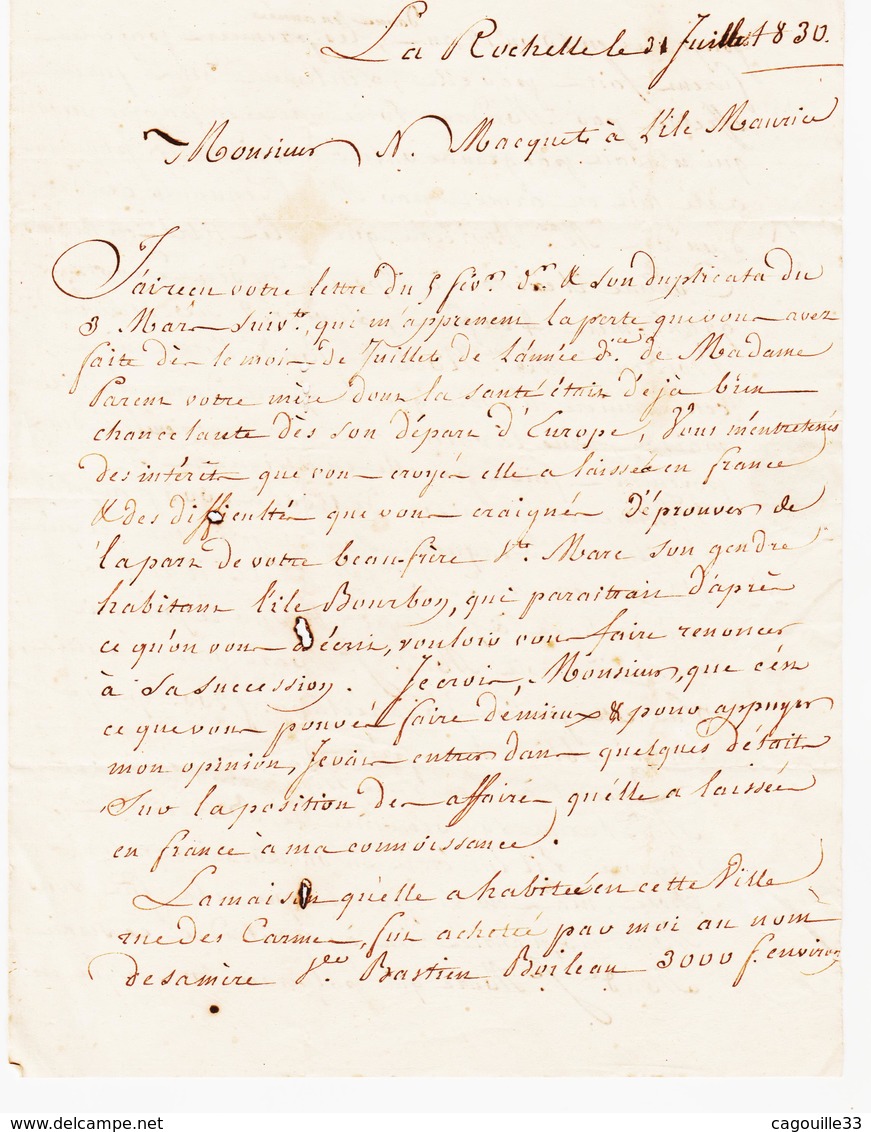 La Rochelle le 31 Juillet 1830.
Monsieur N. Macquet à L'ile Maurice
J'ai recu votre lettre du 5 fév.er d.er & son duplicata du
3 Mars suiv.t, qui m'apprenent la perte que vous avez
faite dès le mois de Juillet de L'année d.re de Madame
Parent votre mère dont la santé était déjà bien
chancelante dès son départ d'Europe, Vous m'entretenés
des intérêts que vous croyés elle a laissée en france
& des difficultés que vous craignés D'éprouver de
la part de votre beau-frère Mare son gendre
habitant l'ile Bourbon, qui paraitrait D'après
ce qu'on vous a écrit, vouloir vous faire renoncer
à sa succession. Je crois, Monsieur, que c'est
ce que vous pouvés faire de mieux & pour appuyer
mon opinion, Je vais entrer dans quelques détails
Sur la position des affaires qu'elle a laissées
en france à ma connoissance.
La maison qu'elle a habitée en cette Ville
rue des Carmes, fut achetée par moi au nom
de sa mère V.ve Bastien Boileau 3000 f. environ
cagouille33